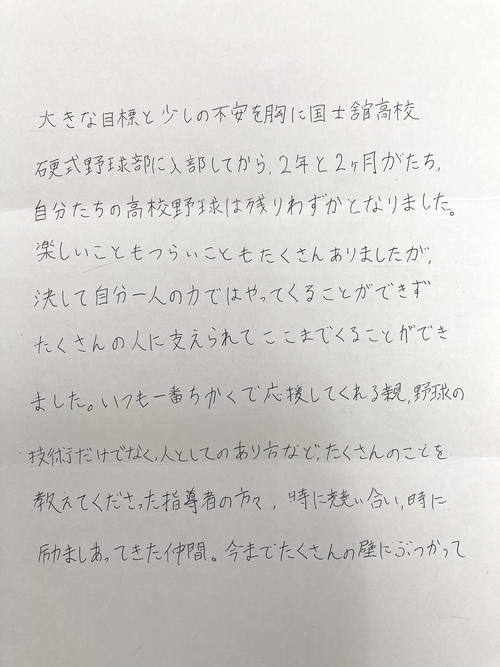 大きな目標と少しの不安を胸に国士舘高校
硬式野球部に入部してから、2年と2ヶ月がたち、
自分たちの高校野球は残りわずかとなりました。
楽しいこともつらいこともたくさんありましたが、
決して自分一人の力ではやってくることができず
たくさんの人に支えられてここまでくることができ
ました。いつも一番ちかくで応援してくれる親、野球の
技術だけでなく、人としてのあり方など、たくさんのことを
教えてくださった指導者の方々、時に競い合い、時に
励ましあってきた仲間。今までたくさんの壁にぶつかって